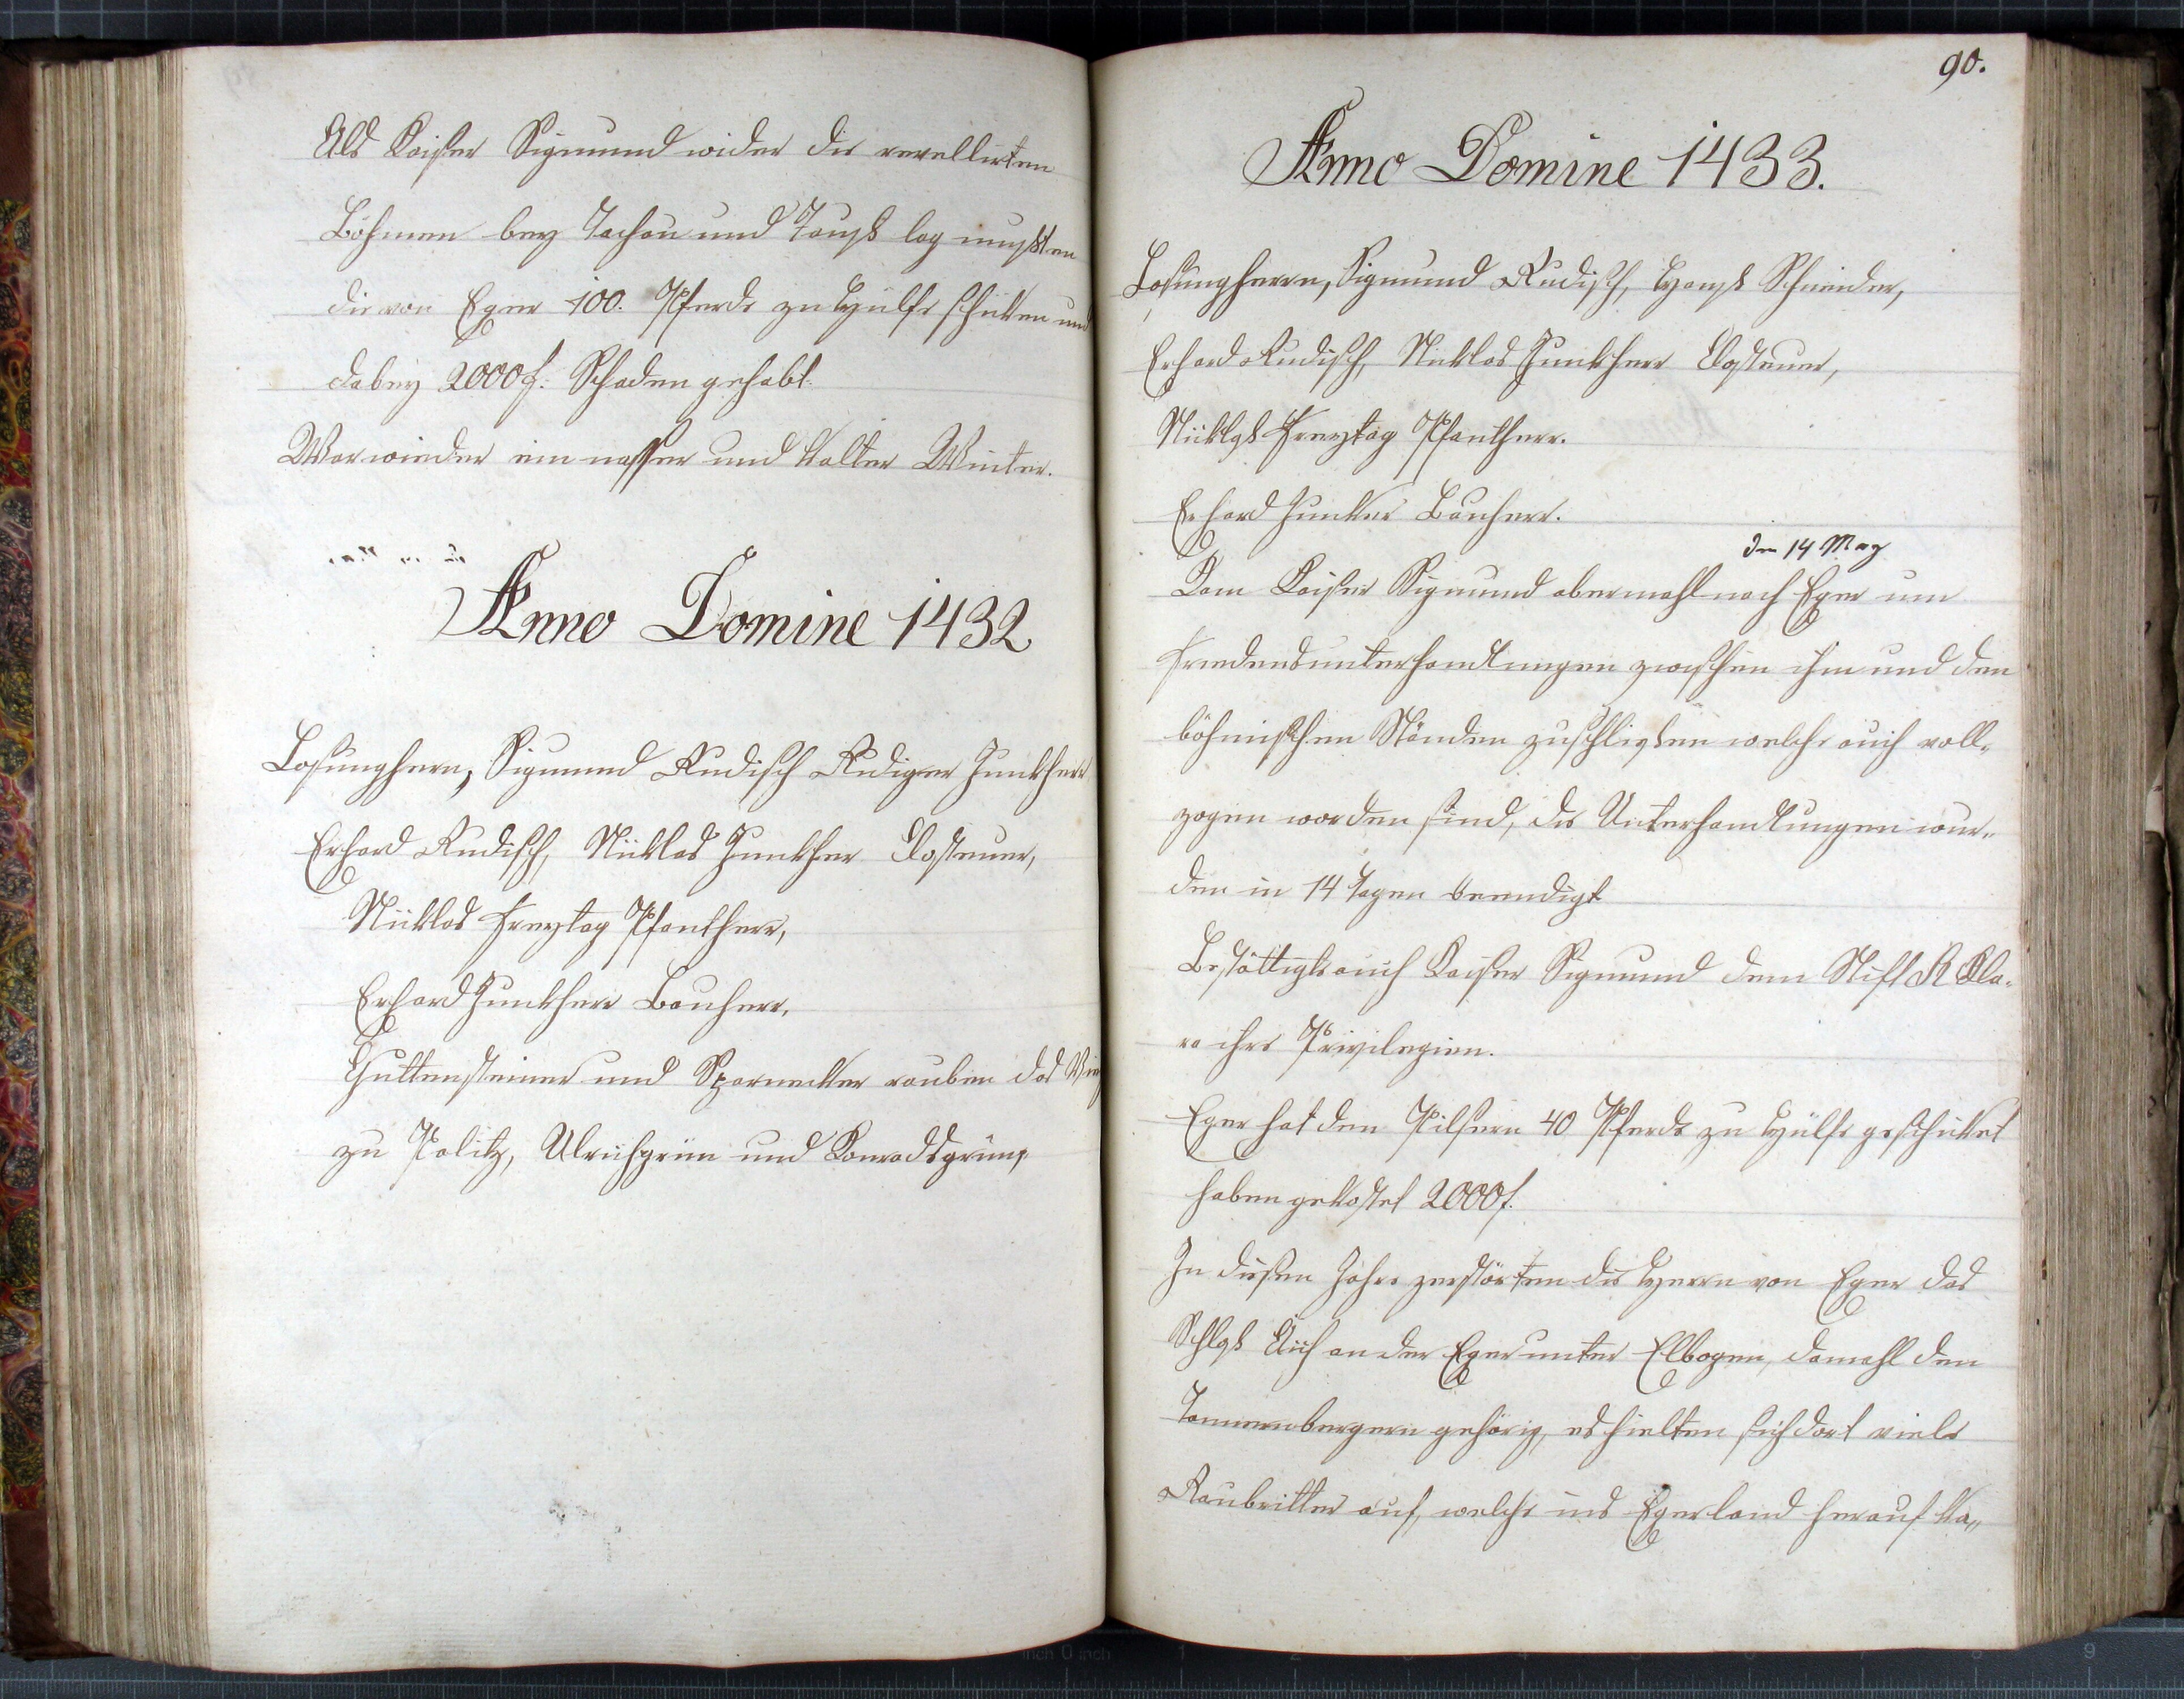 Als Kaiser Sigmund wider die revellirten
Böhmen bey Tachau und Tauß lag mußten
die von Eger 100. Pferde zu Hülfe schicken und
dabey 2000 f: Schaden gehabt.
War wieder ein nasser und kalter Winter.
Anno Domine 1432
Losungherrn, Sigmund Rudisch Rudiger Junkherr
Erhard Rudisch, Niklas Junkher Closteuer,
Niklas Freytag Pfantherr,
Erhard Junkherr Bauherr.
Guttensteiner und Sparnecker rauben das Vieh
zu Politz, Ulrichgrün und Konradsgrün,
90.
Anno Domine 1433.
Losungherrn, Sigmund Rudisch, Hanß Schneider,
Erhard Rudisch, Nicklas Junkherr Closteuer,
Niklaß Freytag Pfantherr.
Erhard Junker Bauherr.
den 14 May
Kam Kaiser Sigmund abermahl nach Eger um
Friedensunterhandlungen zwischen ihm und den
böhmischen Ständen zuschließen welche auch voll-
zogen worden sind, die Unterhandlungen wur-
den in 14 Tagen beendigt
Bestättigte auch Kaiser Sigmund dem Stift St Kla-
ra ihre Privilegien.
Eger hat den Pilsnern 40 Pferde zu Hülfe geschicket
haben gekostet 2000 f.
In diesen Jahre zerstörten die Herrn von Eger das
Schloß Aich an der Eger unter Elbogen, damahl den
Tannenbergern gehörig, es hielten sich dort viele
Raubritter auf, welche ins Egerland herauf ka-